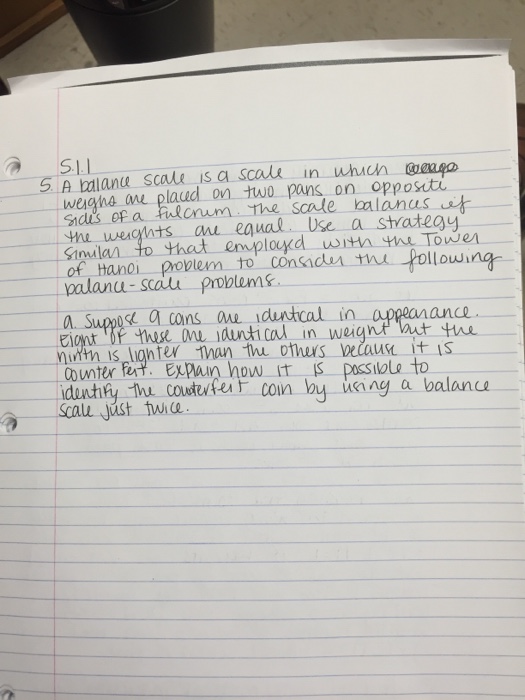 5.1.1
5. A balance scale is a scale in which
weighs are placed on two pans on opposite
sides of a fulcrum. The scale balances if
the weights are equal. Use a strategy
similar to that employed with the Tower
of Hanoi problem to consider the following
balance-scale problems.
a. Suppose 9 coins are identical in appearance.
Eight of these are identical in weight but the
ninth is lighter than the others because it is
counterfeit. Explain how it is possible to
identify the counterfeit coin by using a balance
scale just twice.